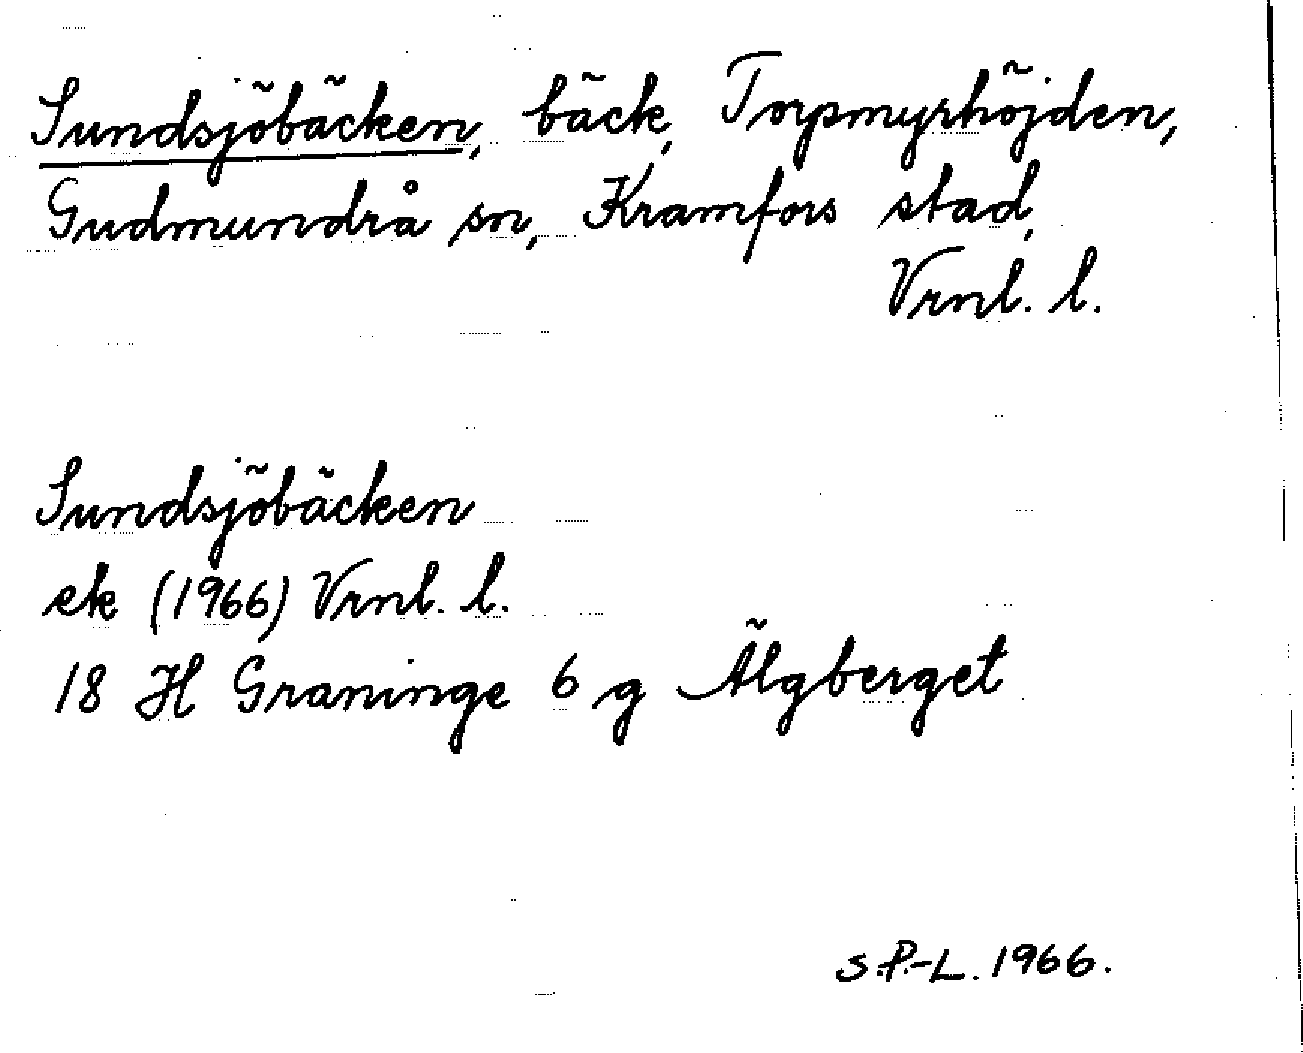 Sundsjöbäcken, bäck, Torpmyrhöjden,
Gudmundrå sn, Kramfors stad,
Vrnl. l.
Sundsjöbäcken
ek (1966) Vrnl. l.
18 H Graninge 6 g Älgberget
S.P.-L. 1966.